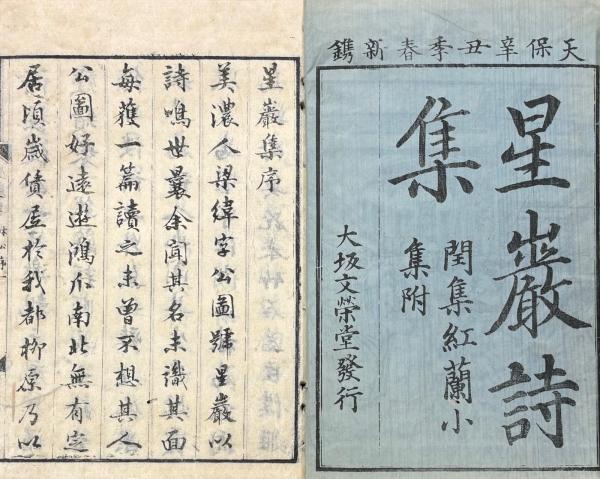 天保辛丑季春新鐫
星巖詩
集
閏集紅蘭小
集附
大坂文榮堂發行
星巖集序
美濃人梁緯字公圖號星巖以
詩鳴世曩余聞其名未識其面
每獲一篇讀之未曾不想其人
公圖好遠遊鴻爪南北無有定
居頃歲僦居於我都柳原乃以